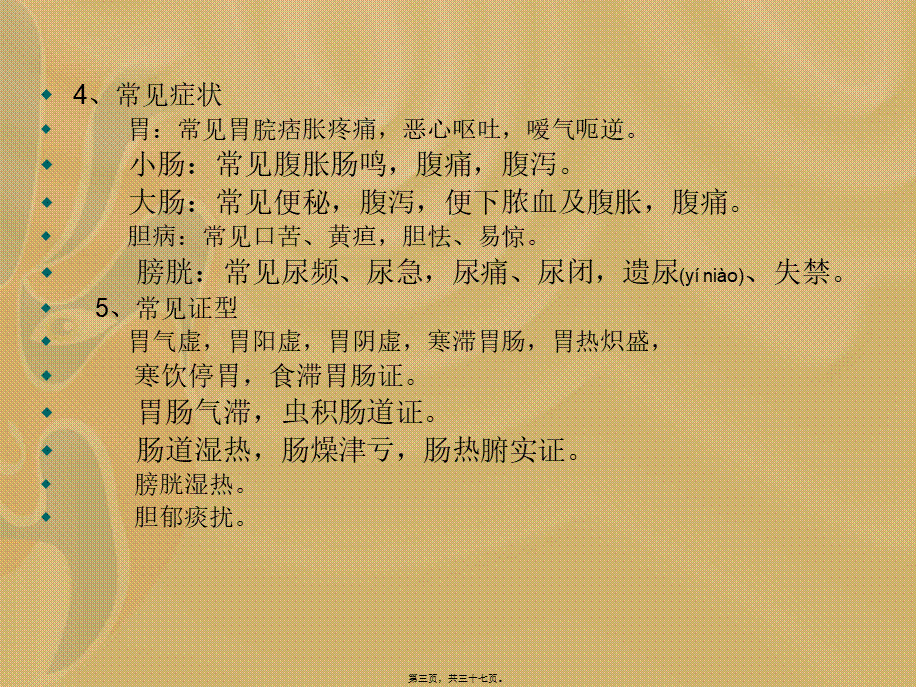 4、常见症状
胃：常见胃脘痞胀疼痛，恶心呕吐，嗳气呃逆。
小肠：常见腹胀肠鸣，腹痛，腹泻。
大肠：常见便秘，腹泻，便下脓血及腹胀，腹痛。
胆病：常见口苦、黄疸，胆怯、易惊。
膀胱：常见尿频、尿急，尿痛、尿闭，遗尿(yí niào)、失禁。
5、常见证型
胃气虚，胃阳虚，胃阴虚，寒滞胃肠，胃热炽盛，
寒饮停胃，食滞胃肠证。
胃肠气滞，虫积肠道证。
肠道湿热，肠燥津亏，肠热腑实证。
膀胱湿热。
胆郁痰扰。
第三页，共三十七页。